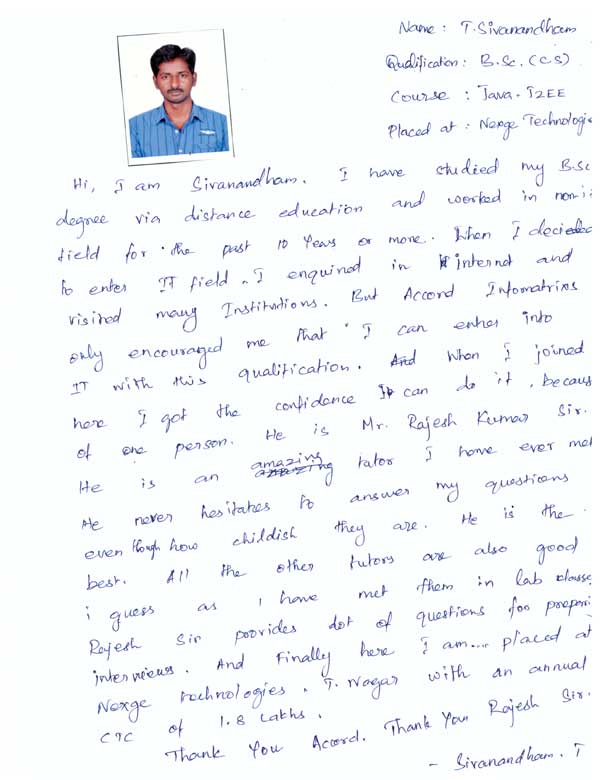 Name : T. Sivanandham
Qualification : B.Sc. (CS)
Course : Java. J2EE
Placed at : Nexge Technologie
Hi, I am Sivanandham. I have studied my B.Sc
degree via distance education and worked in non-i
field for the past 10 Years or more. When I decieded
to enter IT field, I enquired in internet and
visited many Institutions. But Accord Infomatrixs
only encouraged me that I can enter into
IT with this qualification. And When I joined
here I got the confidence I can do it, becaus
of one person. He is Mr. Rajesh Kumar Sir.
He is an amazing tutor I have ever met
He never hesitates to answer my questions
even though how childish they are. He is the
best. All the other tutors are also good
i guess as I have met them in lab classes
Rajesh Sir provides lot of questions for prepari
interviews. And Finally here I am.... placed at
Nexge technologies, T. Nagar with an annual
CTC of 1.8 Lakhs.
Thank You Accord. Thank You Rajesh Sir.
- Sivanandham. T